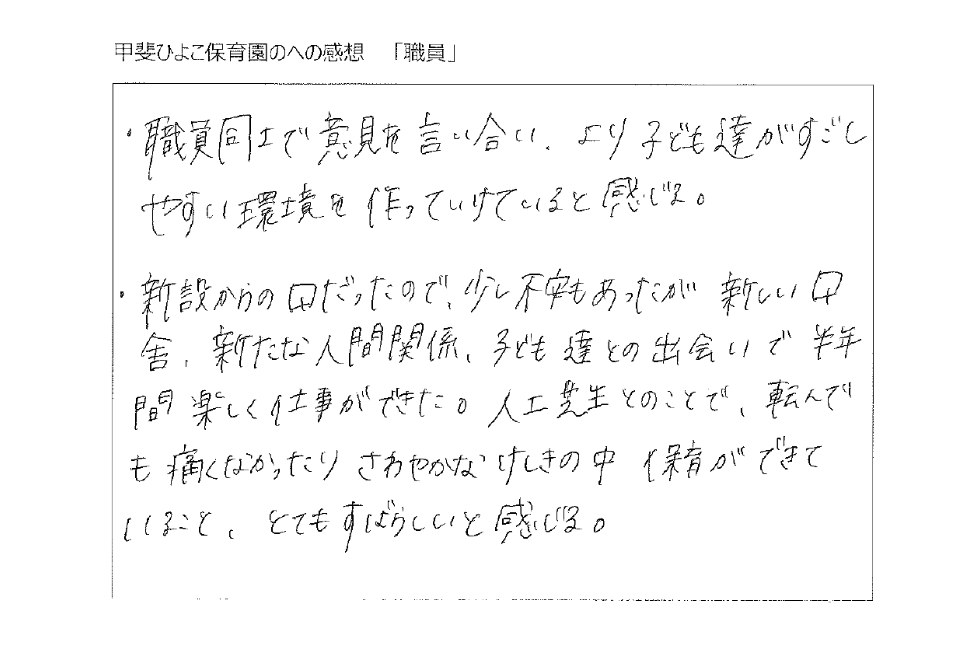 甲斐ひよこ保育園のへの感想 「職員」
・職員同士で意見を言い合い、より子ども達がすごし
やすい環境を作っていけていると感じる。
・新設からの園だったので、少し不安もあったが新しい園
舎、新たな人間関係、子ども達との出会いで半年
間楽しく仕事ができた。人工芝生とのことで、転んで
も痛くなかったりさわやかなけしきの中保育ができて
いること、とてもすばらしいと感じる。